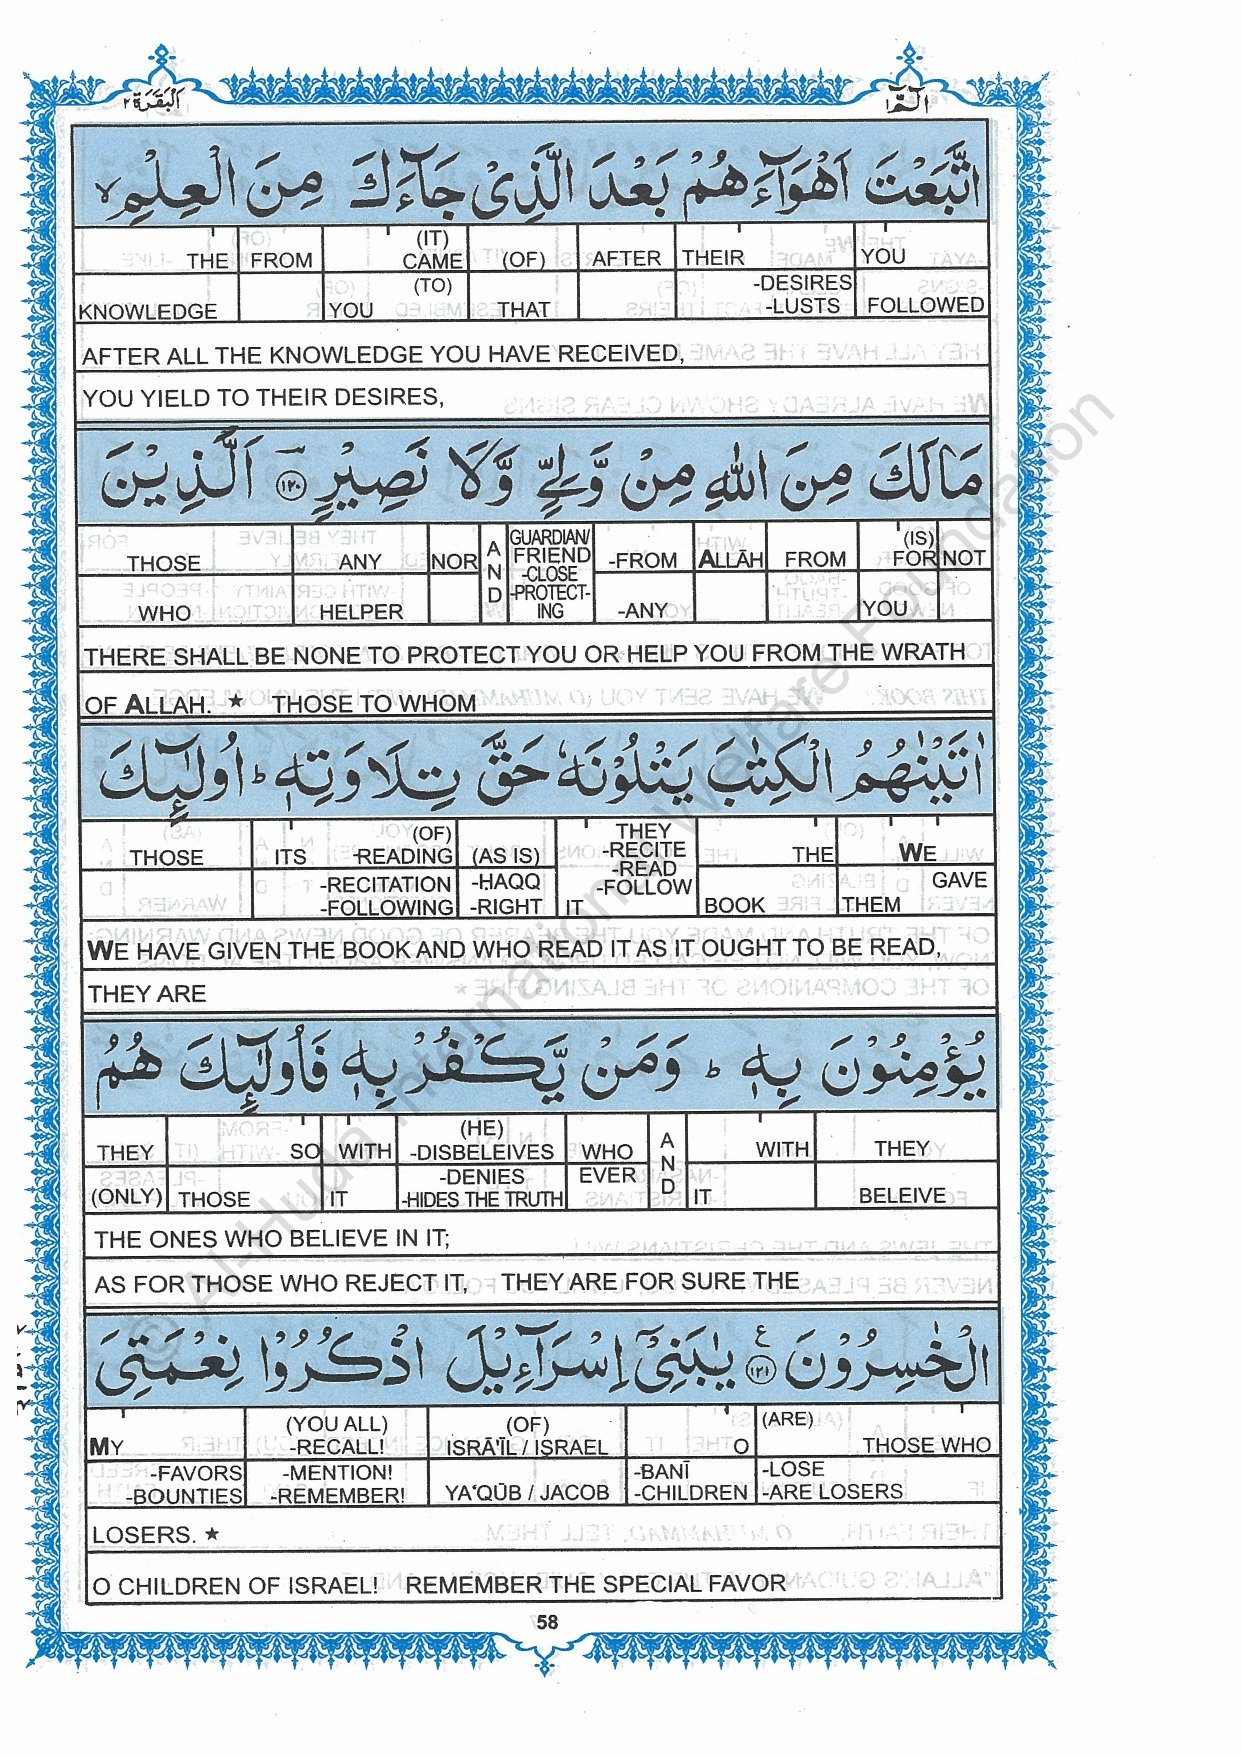 الٓمّٓ ١
اَلْبَقَرَة ٢
اتَّبَعْتَ اَهْوَآءَهُمْ بَعْدَ الَّذِىْ جَآءَكَ مِنَ الْعِلْمِ ۙ
YOU THEIR AFTER (OF) (IT) CAME FROM THE
FOLLOWED -DESIRES -LUSTS THAT (TO) YOU KNOWLEDGE
AFTER ALL THE KNOWLEDGE YOU HAVE RECEIVED,
YOU YIELD TO THEIR DESIRES,
مَا لَكَ مِنَ اللّٰهِ مِنْ وَّلِىٍّ وَّلَا نَصِيْرٍ ۝١٢٠ اَلَّذِيْنَ
NOT (IS) FOR YOU FROM ALLĀH -FROM -ANY GUARDIAN/ FRIEND -CLOSE -PROTECT- ING AND NOR ANY HELPER THOSE WHO
THERE SHALL BE NONE TO PROTECT YOU OR HELP YOU FROM THE WRATH
OF ALLAH. ★ THOSE TO WHOM
اٰتَيْنٰهُمُ الْكِتٰبَ يَتْلُوْنَهٗ حَقَّ تِلَاوَتِهٖ ؕ اُولٰٓئِكَ
WE GAVE THEM THE BOOK THEY -RECITE -READ -FOLLOW IT (AS IS) -HAQQ -RIGHT (OF) -READING -RECITATION -FOLLOWING ITS THOSE
WE HAVE GIVEN THE BOOK AND WHO READ IT AS IT OUGHT TO BE READ,
THEY ARE
يُؤْمِنُوْنَ بِهٖ ؕ وَمَنْ يَّكْفُرْ بِهٖ فَاُولٰٓئِكَ هُمُ
THEY BELEIVE WITH IT AND WHO EVER (HE) -DISBELEIVES -DENIES -HIDES THE TRUTH WITH IT SO THOSE THEY (ONLY)
THE ONES WHO BELIEVE IN IT;
AS FOR THOSE WHO REJECT IT, THEY ARE FOR SURE THE
الْخٰسِرُوْنَ ۝١٢١ ع يٰبَنِىْٓ اِسْرَآءِيْلَ اذْكُرُوْا نِعْمَتِىَ
(ARE) THOSE WHO -LOSE -ARE LOSERS O -BANĪ -CHILDREN (OF) ISRĀ'ĪL / ISRAEL YA'QŪB / JACOB (YOU ALL) -RECALL! -MENTION! -REMEMBER! MY -FAVORS -BOUNTIES
LOSERS. ★
O CHILDREN OF ISRAEL! REMEMBER THE SPECIAL FAVOR
58
© Al-Huda International Welfare Foundation